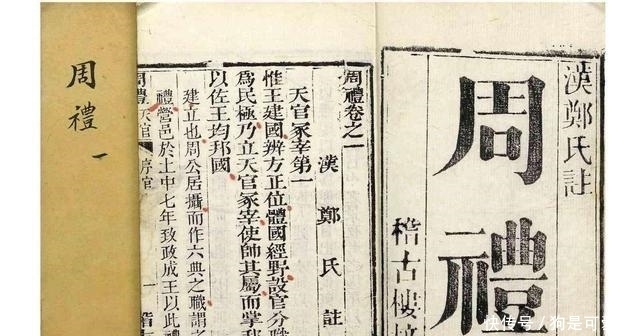 漢鄭氏註
周禮
稽古樓
周禮卷之一
漢鄭氏註
天官冢宰第一
惟王建國辨方正位體國經野設官分職
爲民極乃立天官冢宰使帥其屬而掌
以佐王均邦國
建立也周公居攝而作六典之職謂
禮營邑於土中七年致政成王以此
周禮 天官 序官
周禮 一
快传号/狗是可